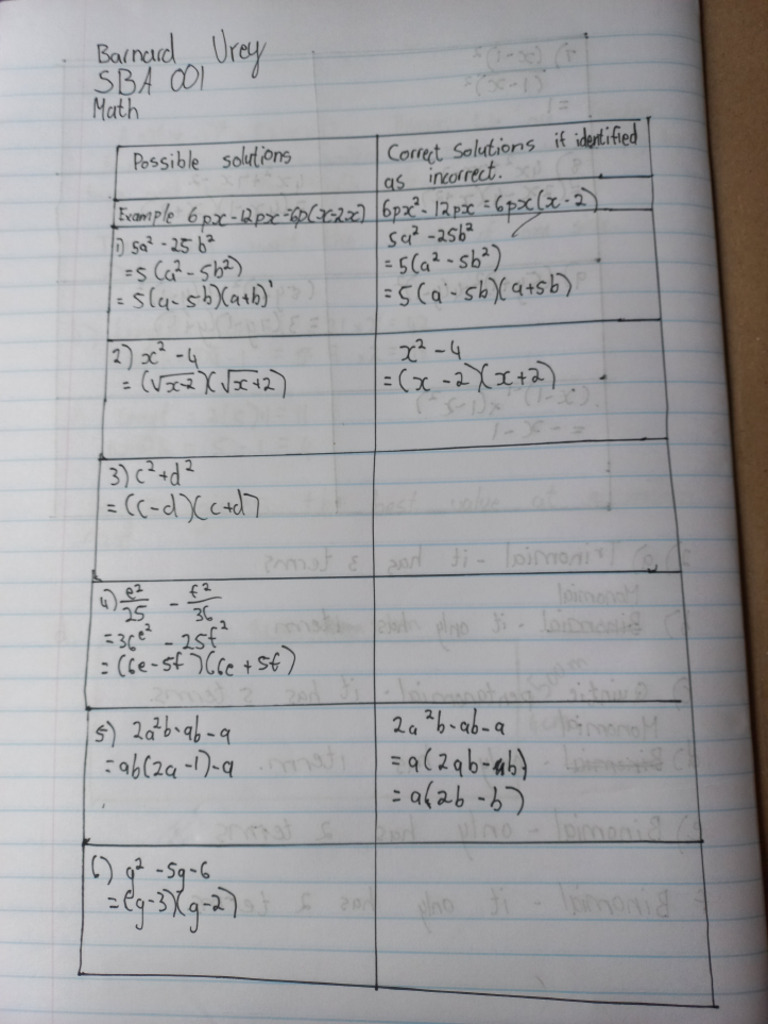 Barnard Urey
SBA 001
Math
Possible solutions
Correct solutions if identified
as incorrect.
Example 6px-12px=6p(x-2x)
6px²-12px=6px(x-2)
1) 5a²-25b²
=5(a²-5b²)
=5(a-5b)(a+b)
5a²-25b²
=5(a²-5b²)
=5(a-5b)(a+5b)
2) x²-4
=(√x-2)(√x+2)
x²-4
=(x-2)(x+2)
3) c²+d²
=(c-d)(c+d)
4) e²/25 - f²/36
=36e²-25f²
=(6e-5f)(6e+5f)
5) 2a²b-ab-a
=ab(2a-1)-a
2a²b-ab-a
=a(2ab-ab)
=a(2b-b)
6) g²-5g-6
=(g-3)(g-2)